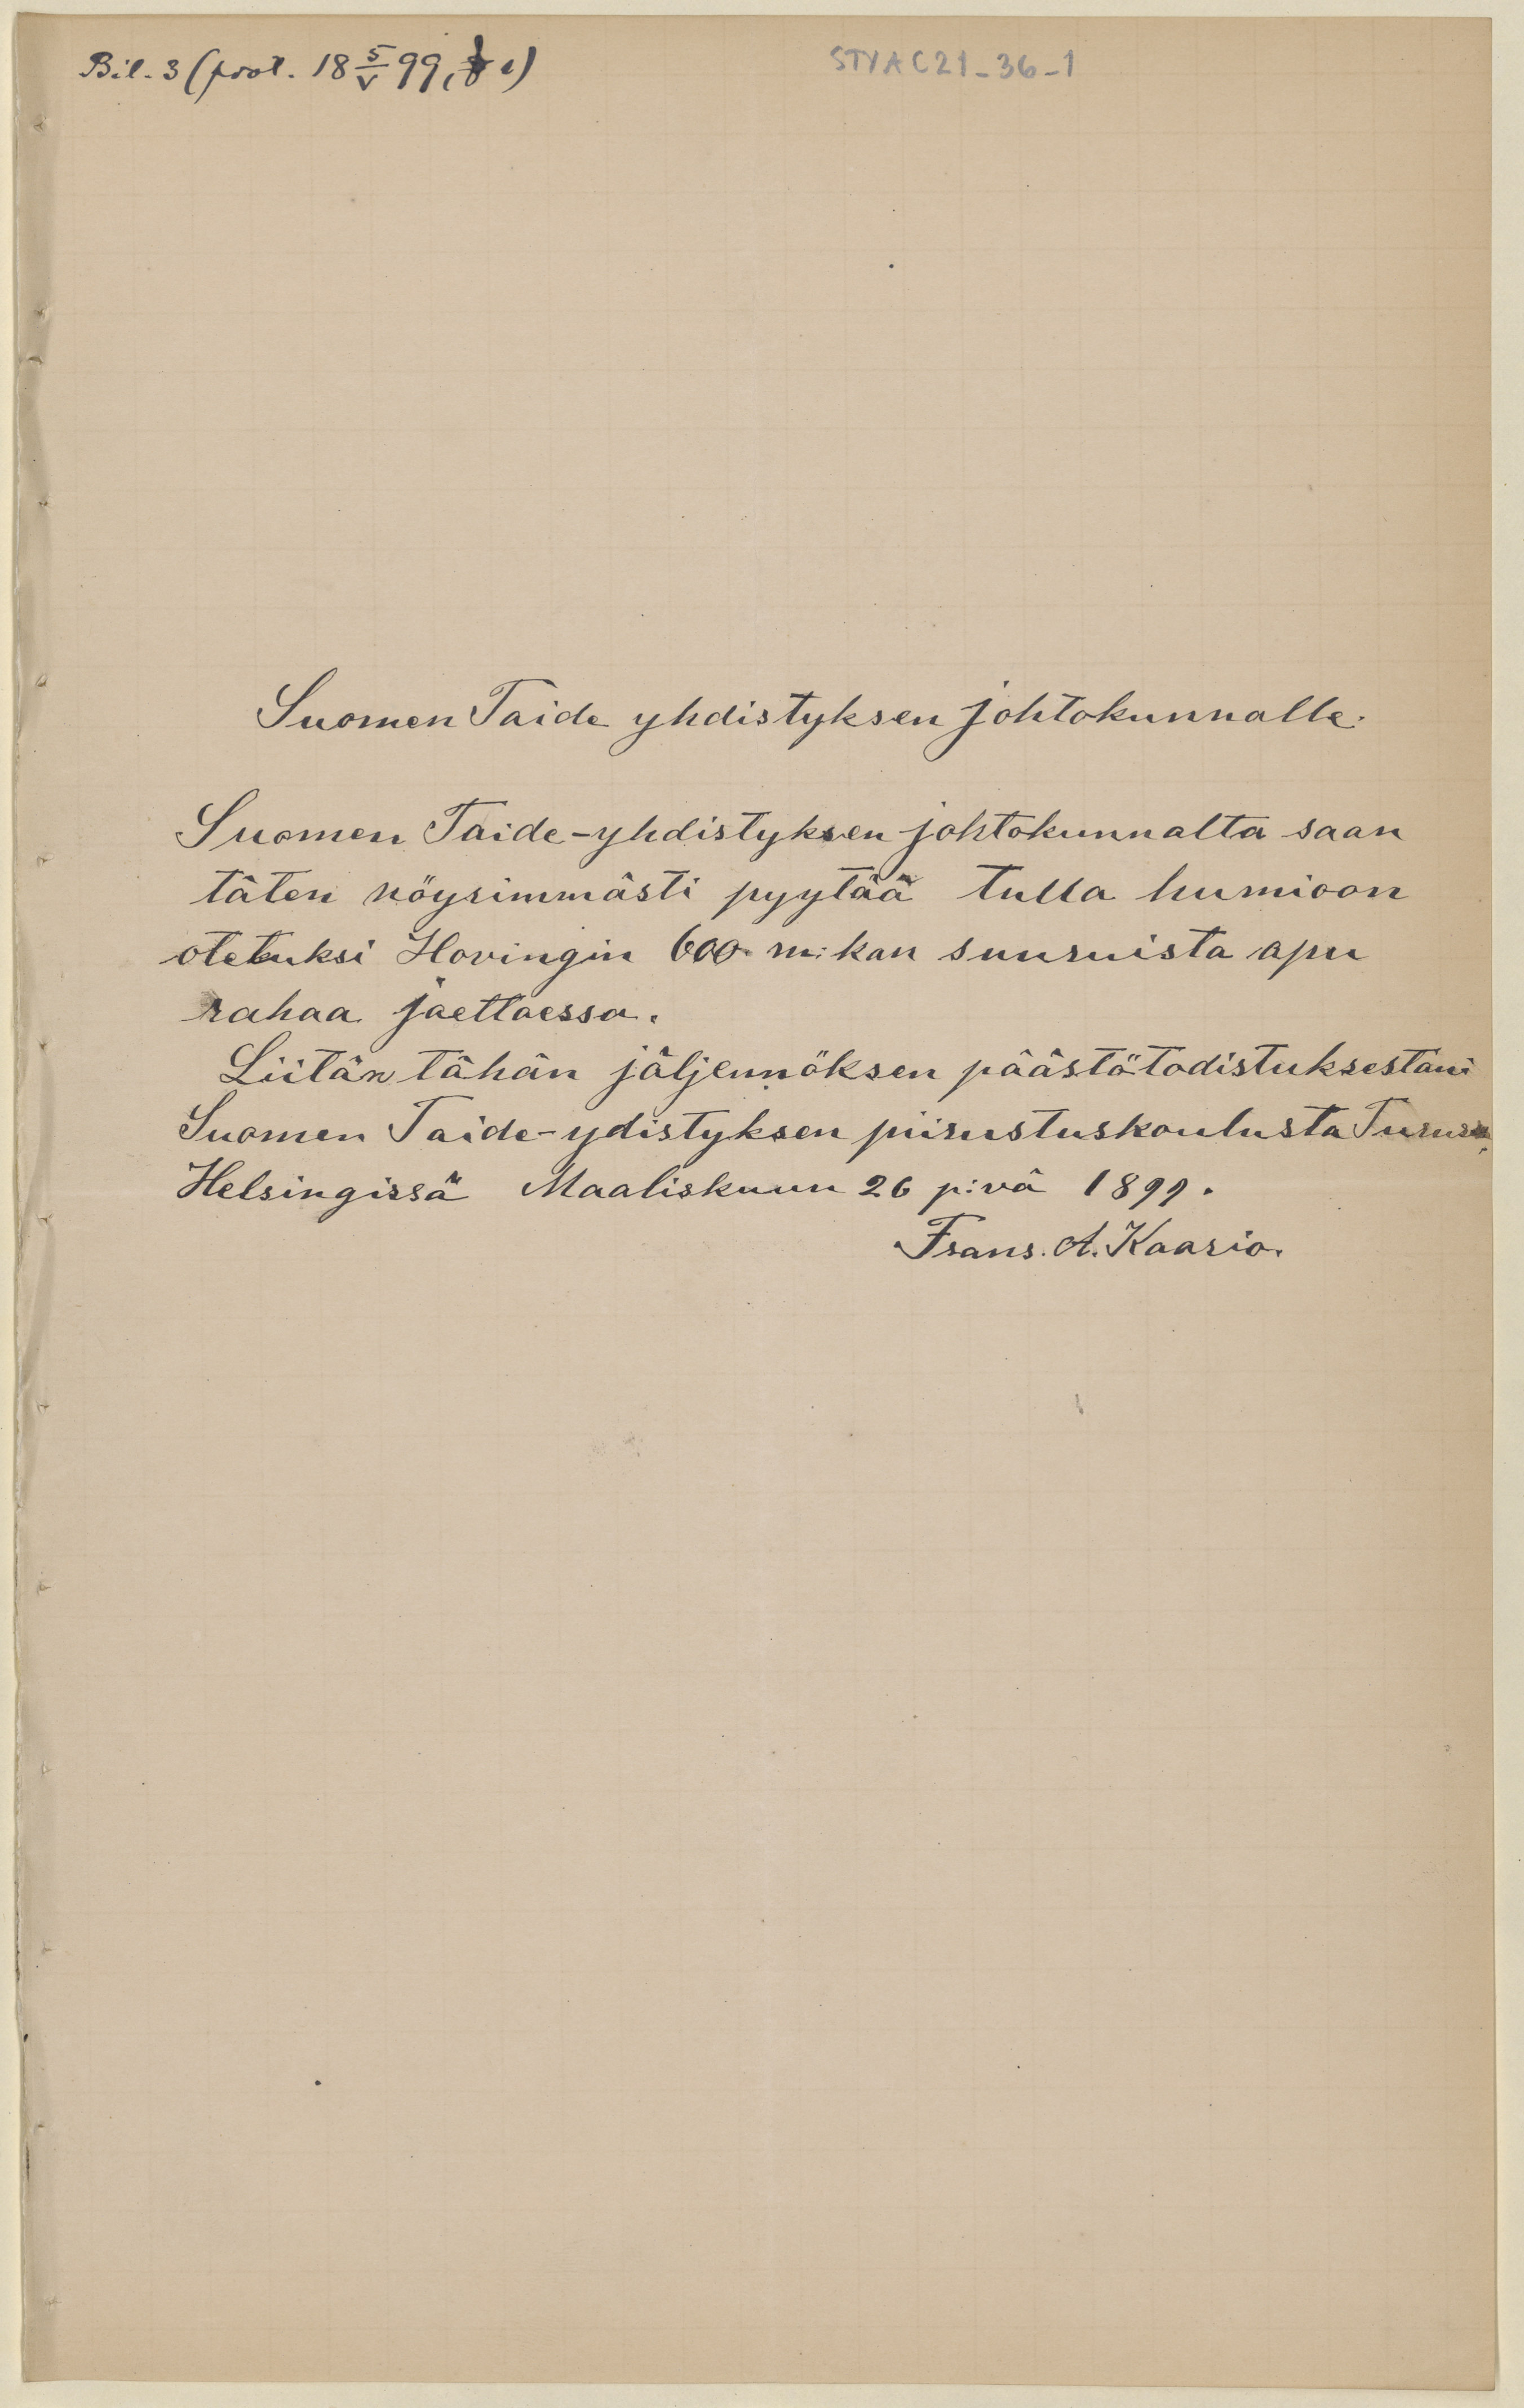 Bil. 3 (prot. 18 5/V 99,
STYAC21-36-1
Suomen Taide yhdistyksen johtokunnalle.
Suomen Taide-yhdistyksen johtokunnalta saan
täten nöyrimmästi pyytää tulla humioon
otetuksi Hovingin 600 m:kan suuruista apu
rahaa jaettaessa.
Liitän tähän jäljennöksen päästötodistuksestani
Suomen Taide-ydistyksen piirustuskoulusta
Helsingissä Maaliskuun 26 p:vä 1899.
Frans. A. Kaario.